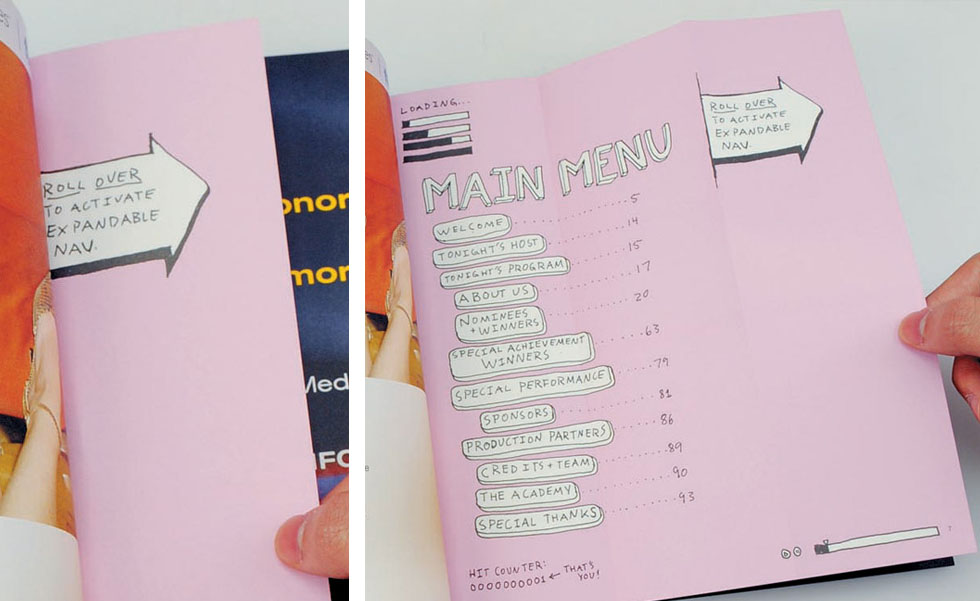 ROLL OVER
TO ACTIVATE
EXPANDABLE
NAV.
LOADING...
MAIN MENU
WELCOME ........ 5
TONIGHT'S HOST ........ 14
TONIGHT'S PROGRAM ........ 15
ABOUT US ........ 17
NOMINEES
+ WINNERS ........ 20
SPECIAL ACHIEVEMENT
WINNERS ........ 63
SPECIAL PERFORMANCE ........ 79
SPONSORS ........ 81
PRODUCTION PARTNERS ........ 86
CREDITS + TEAM ........ 89
THE ACADEMY ........ 90
SPECIAL THANKS ........ 93
HIT COUNTER:
0000000001 ← THAT'S
YOU!
ROLL OVER
TO ACTIVATE
EXPANDABLE
NAV.